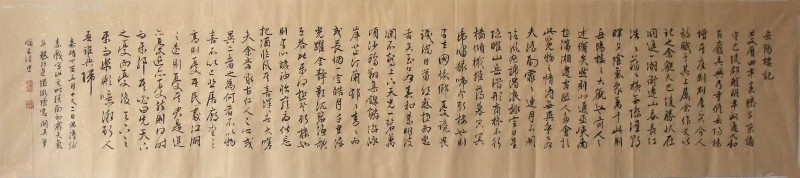 岳陽樓記
慶曆四年春滕子京謫
守巴陵郡越明年政通人和
百廢具興乃重修岳陽樓
增其舊制刻唐賢今人
詩賦于其上屬余作文以
記之余觀夫巴陵勝狀在
洞庭一湖銜遠山吞長江
浩浩湯湯橫無際涯朝
暉夕陰氣象萬千此則
岳陽樓之大觀也前人之
述備矣然則北通巫峽南
極瀟湘遷客騷人多會於
此覽物之情得無異乎若
夫淫雨霏霏連月不開
陰風怒號濁浪排空日星
隱曜山岳潛形商旅不行
檣傾楫摧薄暮冥冥
虎嘯猿啼登斯樓也則
有去國懷鄉憂讒畏
譏滿目蕭然感極而悲
者矣至若春和景明波
瀾不驚上下天光一碧萬
頃沙鷗翔集錦鱗游泳
岸芷汀蘭郁郁青青而
或長煙一空皓月千里浮
光躍金靜影沉璧漁歌
互答此樂何極登斯樓也
則有心曠神怡寵辱偕忘
把酒臨風其喜洋洋者矣嗟
夫余嘗求古仁人之心或
異二者之為何哉不以物
喜不以己悲居廟堂之
高則憂其民處江湖
之遠則憂其君是進
亦憂退亦憂然則何時
而樂耶其必曰先天下
之憂而憂後天下之
樂而樂歟噫微斯人
吾誰與歸